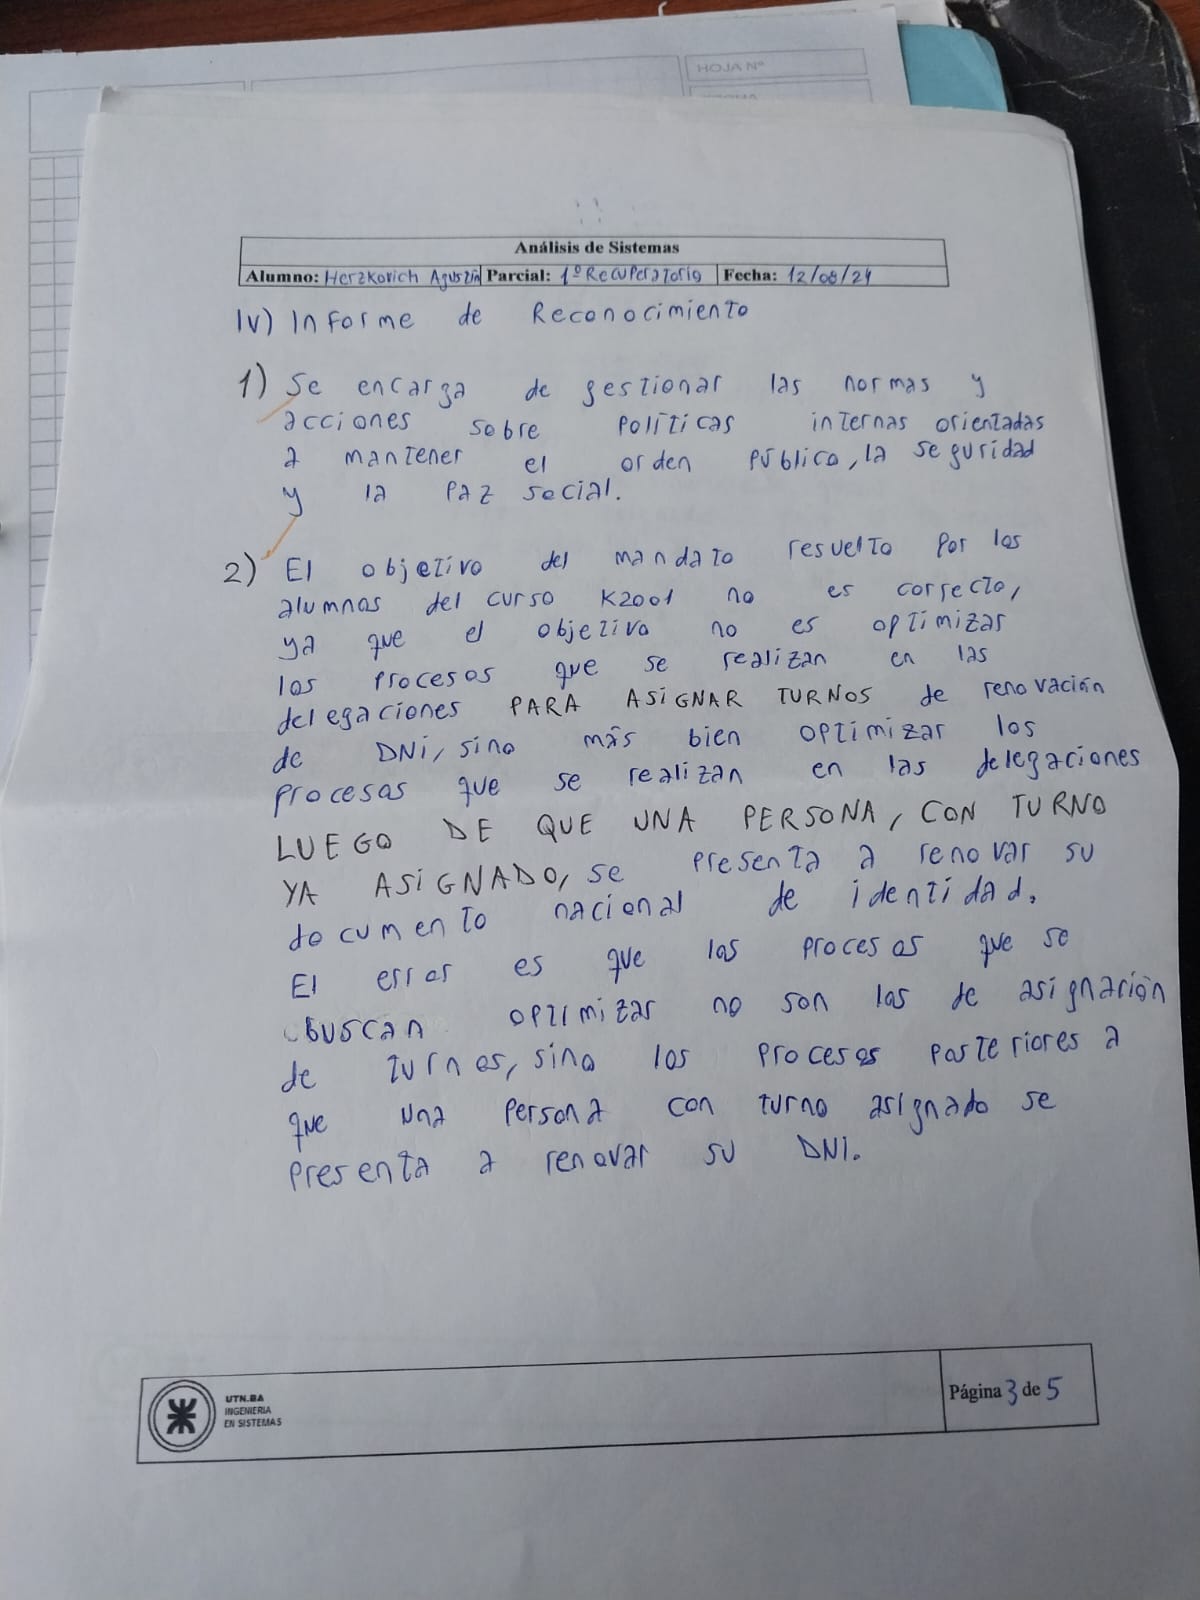 HOJA Nº
Análisis de Sistemas
Alumno: Herzkovich Agustín Parcial: 1º Recuperatorio Fecha: 12/08/24
IV) Informe de Reconocimiento
1) Se encarga de gestionar las normas y
acciones sobre políticas internas orientadas
a mantener el orden público, la seguridad
y la paz social.
2) El objetivo del mandato resuelto por los
alumnos del curso K2001 no es correcto,
ya que el objetivo no es optimizar
los procesos que se realizan en las
delegaciones PARA ASIGNAR TURNOS de renovación
de DNI, sino más bien optimizar los
procesos que se realizan en las delegaciones
LUEGO DE QUE UNA PERSONA, CON TURNO
YA ASIGNADO, se presenta a renovar su
documento nacional de identidad.
El error es que los procesos que se
buscan optimizar no son los de asignación
de turnos, sino los procesos posteriores a
que una persona con turno asignado se
presenta a renovar su DNI.
UTN.BA
INGENIERIA
EN SISTEMAS
Página 3 de 5